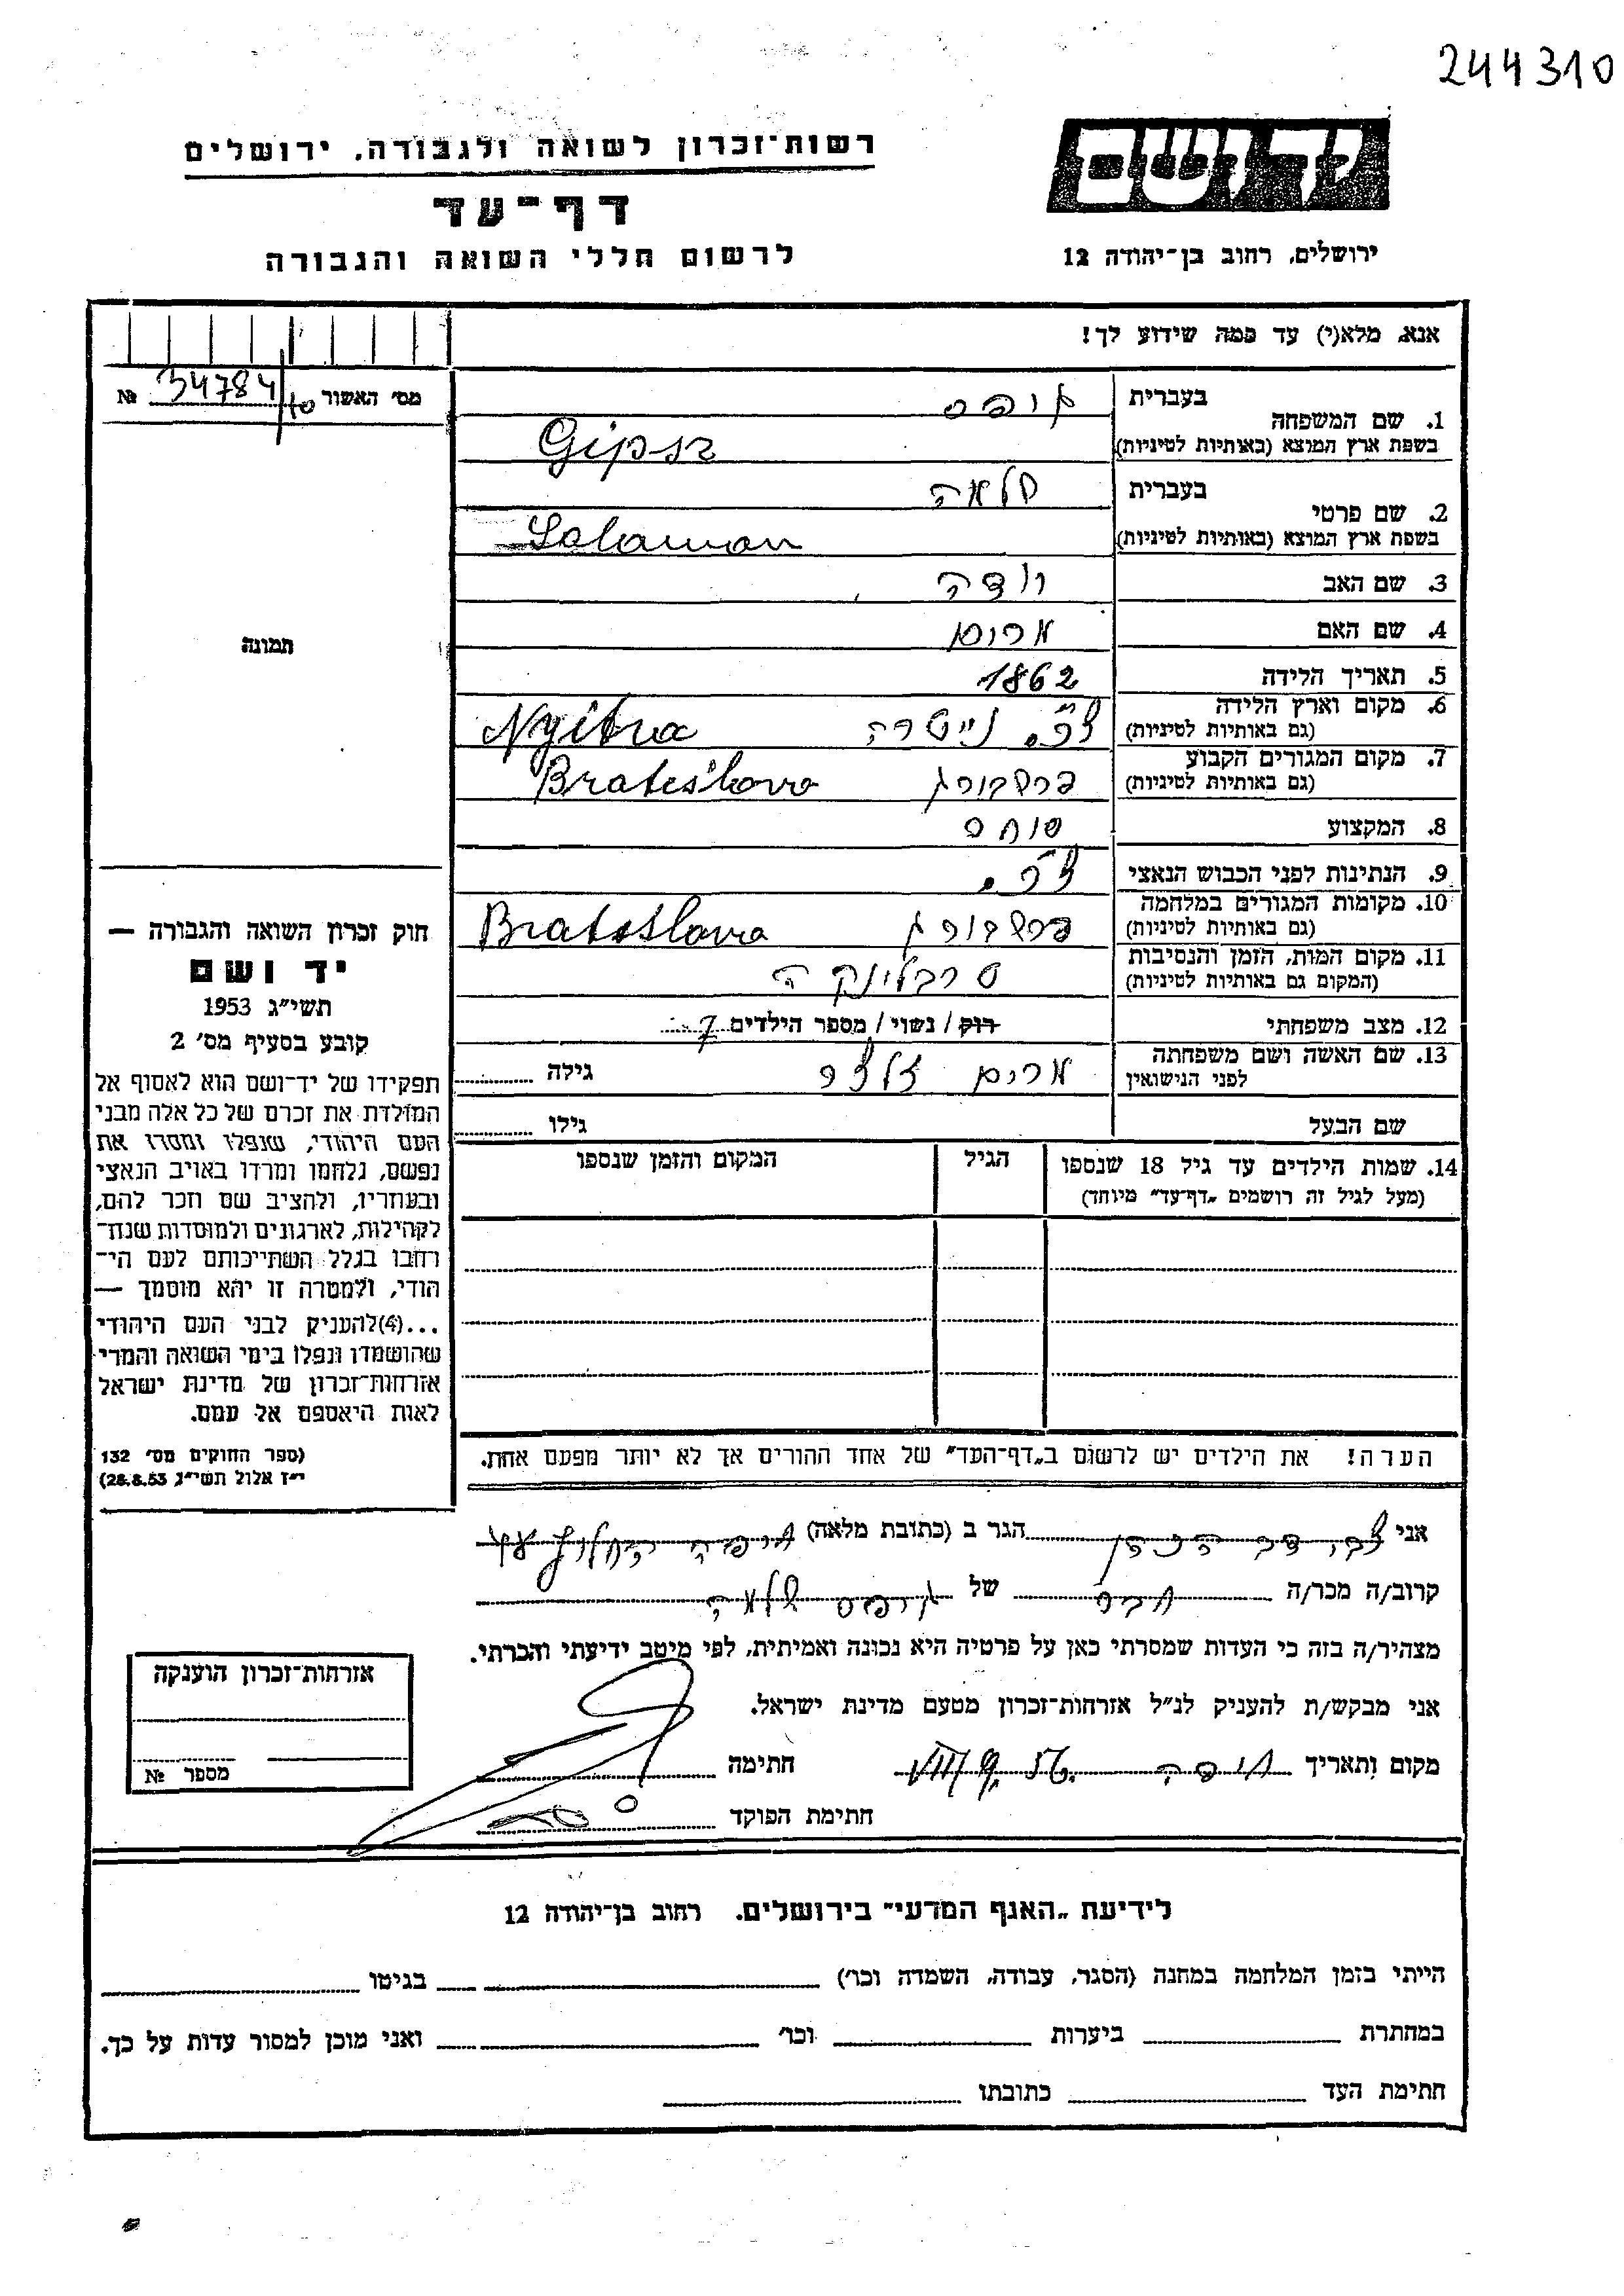 244310
יד ושם
רשות־זכרון לשואה ולגבורה, ירושלים
דף־עד
לרשום חללי השואה והגבורה
ירושלים, רחוב בן־יהודה 12
אנא, מלא(י) עד כמה שידוע לך!
מס׳ האשור 34784/10 №
1. שם המשפחה
בעברית גיפס
בשפת ארץ המוצא (באותיות לטיניות) Gipsz
2. שם פרטי
בעברית שלמה
בשפת ארץ המוצא (באותיות לטיניות) Salamon
3. שם האב יודה
4. שם האם מרים
5. תאריך הלידה 1862
6. מקום וארץ הלידה (גם באותיות לטיניות) צ׳כ. נייטרה Nyitra
7. מקום המגורים הקבוע (גם באותיות לטיניות) פרשבורג Bratislava
8. המקצוע סוחר
9. הנתינות לפני הכבוש הנאצי צ׳כ.
10. מקומות המגורים במלחמה (גם באותיות לטיניות) פרשבורג Bratislava
11. מקום המות, הזמן והנסיבות (המקום גם באותיות לטיניות) טרבלינקה
12. מצב משפחתי רוק / נשוי / מספר הילדים 7
13. שם האשה ושם משפחתה לפני הנישואין מרים זלצר גילה
שם הבעל גילו
14. שמות הילדים עד גיל 18 שנספו
(מעל לגיל זה רושמים „דף־עד״ מיוחד)
הגיל
המקום והזמן שנספו
הערה! את הילדים יש לרשום ב„דף־העד״ של אחד ההורים אך לא יותר מפעם אחת.
תמונה
חוק זכרון השואה והגבורה —
יד ושם
תשי״ג 1953
קובע בסעיף מס׳ 2
תפקידו של יד־ושם הוא לאסוף אל
המולדת את זכרם של כל אלה מבני
העם היהודי, שנפלו ומסרו את
נפשם, נלחמו ומרדו באויב הנאצי
ובעוזריו, ולהציב שם וזכר להם,
לקהילות, לארגונים ולמוסדות שנח־
רחבו בגלל השתייכותם לעם הי־
הודי, ולמטרה זו יהא מוסמך —
...(4)להעניק לבני העם היהודי
שהושמדו ונפלו בימי השואה והמרי
אזרחות־זכרון של מדינת ישראל
לאות היאספם אל עמם.
(ספר החוקים מס׳ 132
י״ז אלול תשי״ג 28.8.53)
אני צבי דב הכהן הגר ב (כתובת מלאה) חיפה החלוץ
קרוב/ה מכר/ה חבר של גיפס שלמה
מצהיר/ה בזה כי העדות שמסרתי כאן על פרטיה היא נכונה ואמיתית, לפי מיטב ידיעתי והכרתי.
אני מבקש/ת להעניק לנ״ל אזרחות־זכרון מטעם מדינת ישראל.
מקום ותאריך חיפה חתימה
חתימת הפוקד
אזרחות־זכרון הוענקה
מספר №
לידיעת „האגף המדעי״ בירושלים. רחוב בן־יהודה 12
הייתי בזמן המלחמה במחנה (הסגר, עבודה, השמדה וכו׳) בגיטו
במחתרת ביערות וכו׳ ואני מוכן למסור עדות על כך.
חתימת העד כתובתו